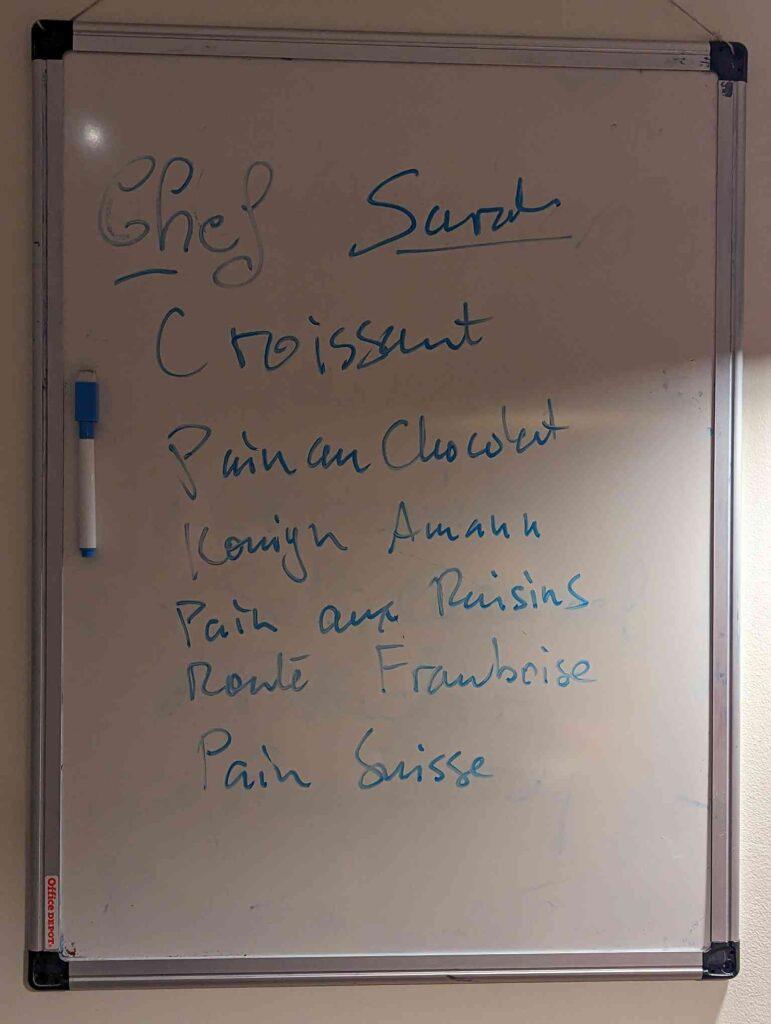 Chef Sarah
Croissant
Pain au Chocolat
Konign Amann
Pain aux Raisins
Roulé Framboise
Pain Suisse
Office DEPOT